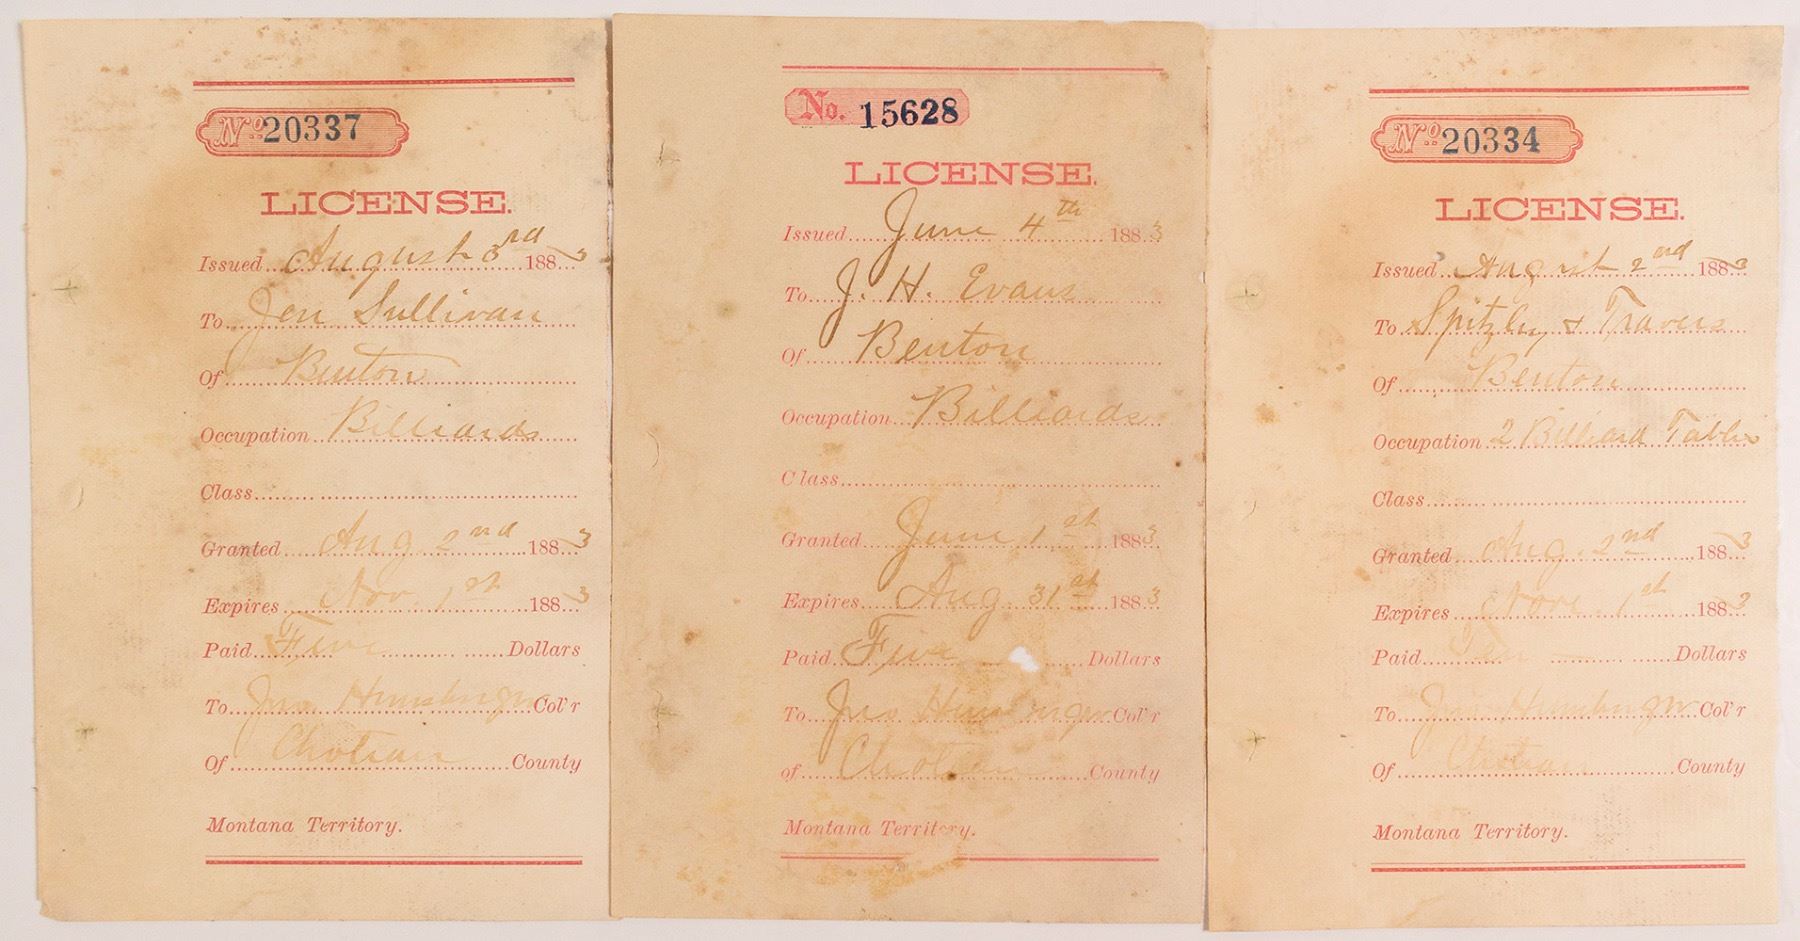 No. 20337
LICENSE.
Issued August 3rd 1883
To Jen Sullivan
Of Benton
Occupation Billiards
Class
Granted Aug 2nd 1883
Expires Nov. 1st 1883
Paid Five Dollars
To Jno. Col'r
Of County
Montana Territory.
No. 15628
LICENSE.
Issued June 4th 1883
To J. H. Evans
Of Benton
Occupation Billiards
Class
Granted June 1st 1883
Expires Aug 31st 1883
Paid Five Dollars
To Jno Col'r
of County
Montana Territory.
No. 20334
LICENSE.
Issued August 2nd 1883
To & Travers
Of Benton
Occupation 2 Billiard Tables
Class
Granted Aug. 2nd 1883
Expires Nov. 1st 1883
Paid Ten Dollars
To Jno Col'r
Of County
Montana Territory.